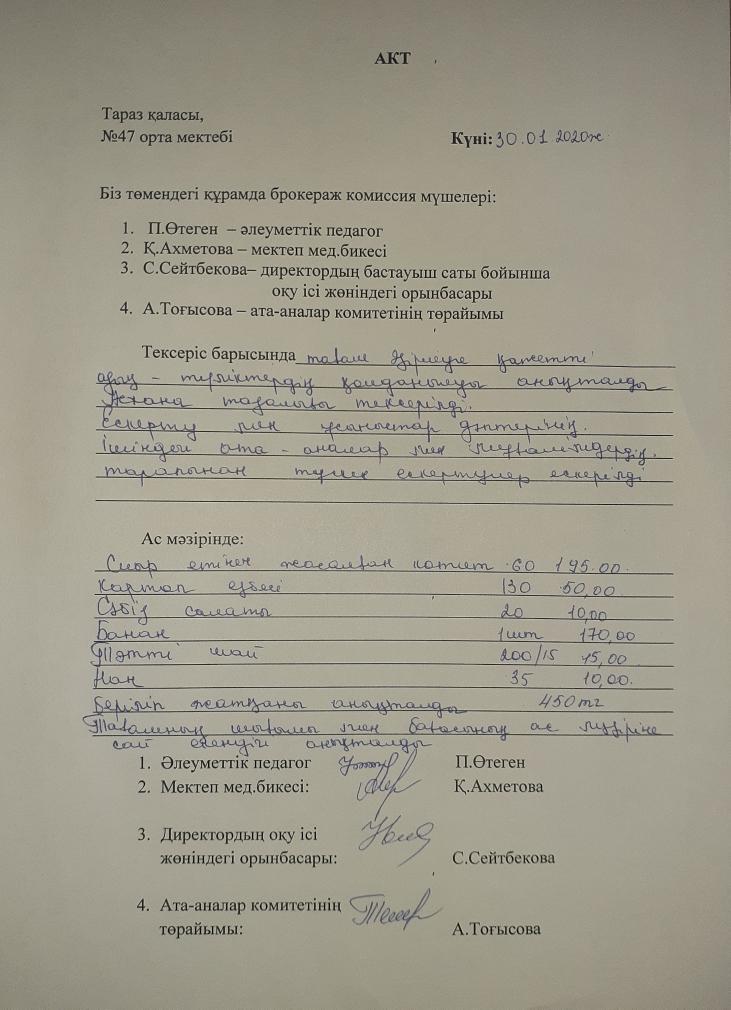 АКТ
Тараз қаласы,
№47 орта мектебі
Күні: 30.01 2020ж
Біз төмендегі құрамда брокераж комиссия мүшелері:
1. П.Өтеген – әлеуметтік педагог
2. Қ.Ахметова – мектеп мед.бикесі
3. С.Сейтбекова– директордың бастауыш саты бойынша
оқу ісі жөніндегі орынбасары
4. А.Тоғысова – ата-аналар комитетінің төрайымы
Тексеріс барысында тағам әзірлеуге қажетті
азық - түліктердің қолданылуы анықталды
Асхана тазалығы тексерілді.
Ескерту мен ұсыныстар дәптерінің.
Ішіндегі ата - аналар мен мұғалімдердің.
тарапынан түскен ескертулер ескерілді
Ас мәзірінде:
Сиыр етінен жасалған котлет 60 195.00.
Картоп езбесі 130 50,00
Сәбіз салаты 20 10,00
Банан 1шт 170,00
Тәтті шай 200/15 15,00
Нан 35 10,00.
Беріліп жатқаны анықталды 450тг
Тағамның шығымы мен бағасының ас мәзіріне
сай екендігі анықталды
1. Әлеуметтік педагог П.Өтеген
2. Мектеп мед.бикесі: Қ.Ахметова
3. Директордың оқу ісі
жөніндегі орынбасары: С.Сейтбекова
4. Ата-аналар комитетінің
төрайымы: А.Тоғысова